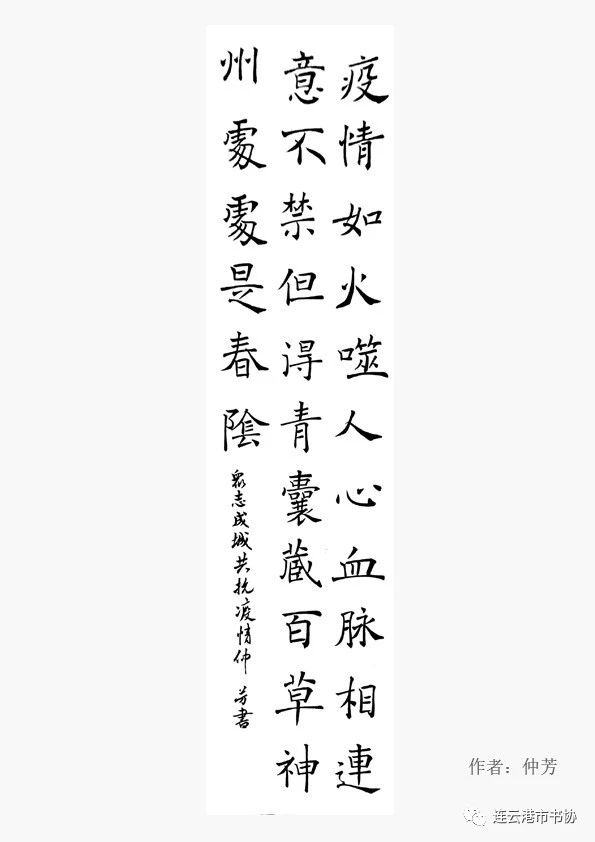 疫情如火噬人心血脉相連
意不禁但得青囊蔵百草神
州處處是春陰
衆志成城共抗疫情仲芳書
作者：仲芳
连云港市书协